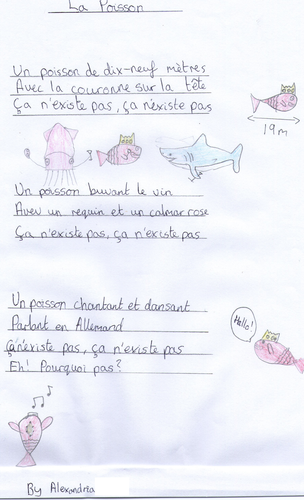 La Poisson
Un poisson de dix-neuf mètres
Avec la couronne sur la tête
Ça n'existe pas, ça n'existe pas
19m
Un poisson buvant le vin
Avec un requin et un calmar rose
Ça n'existe pas, ça n'existe pas
Un poisson chantant et dansant
Parlant en Allemand
Hello!
ça n'existe pas, ça n'existe pas
Eh! Pourquoi pas?
By Alexandria